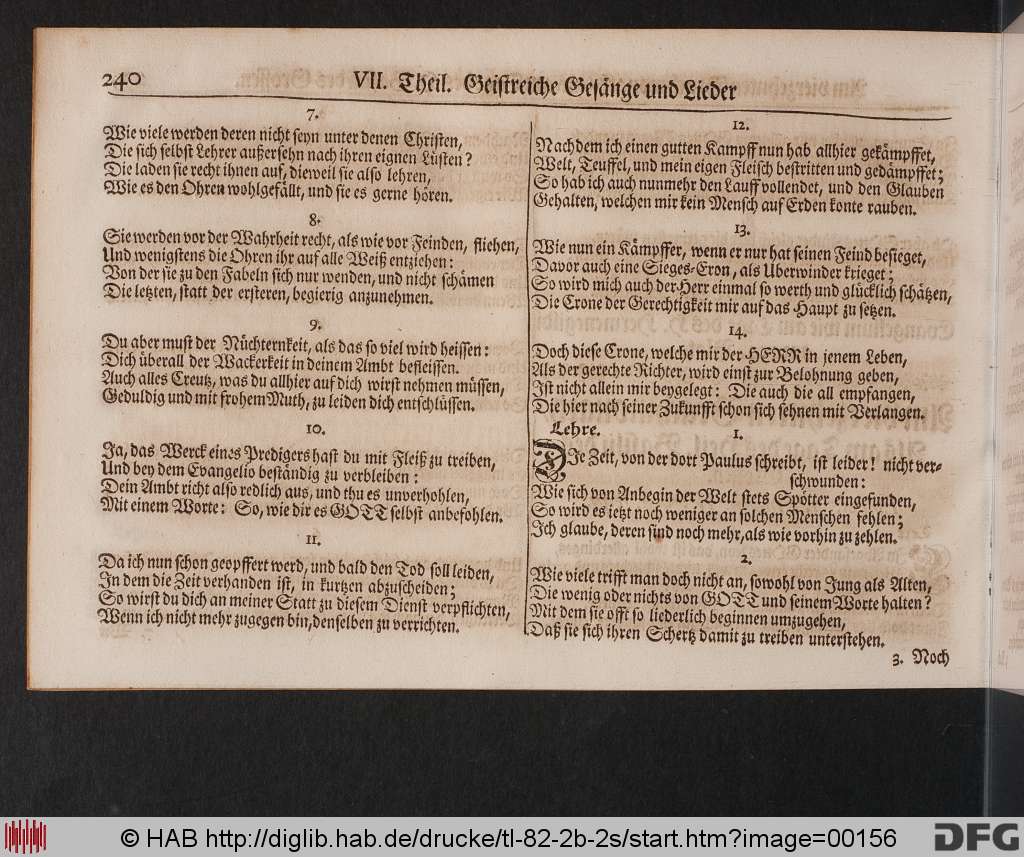 240
VII. Theil. Geistreiche Gesänge und Lieder
7.
Wie viele werden deren nicht seyn unter denen Christen,
Die sich selbst Lehrer außersehn nach ihren eignen Lüsten?
Die laden sie recht ihnen auf, dieweil sie also lehren,
Wie es den Ohren wohlgefällt, und sie es gerne hören.
8.
Sie werden vor der Wahrheit recht, als wie vor Feinden, fliehen,
Und wenigstens die Ohren ihr auf alle Weiß entziehen:
Von der sie zu den Fabeln sich nur wenden, und nicht schämen
Die letzten, statt der ersteren, begierig anzunehmen.
9.
Du aber must der Nüchternkeit, als das so viel wird heissen:
Dich überall der Wackerkeit in deinem Ambt befleissen.
Auch alles Creutz, was du allhier auf dich wirst nehmen müssen,
Geduldig und mit frohem Muth, zu leiden dich entschlüssen.
10.
Ja, das Werck eines Predigers hast du mit Fleiß zu treiben,
Und bey dem Evangelio beständig zu verbleiben:
Dein Ambt richt also redlich aus, und thu es unverhohlen,
Mit einem Worte: So, wie dir es GOTT selbst anbefohlen.
11.
Da ich nun schon geopffert werd, und bald den Tod soll leiden,
In dem die Zeit verhanden ist, in kurtzen abzuscheiden;
So wirst du dich an meiner Statt zu diesem Dienst verpflichten,
Wenn ich nicht mehr zugegen bin, denselben zu verrichten.
12.
Nachdem ich einen gutten Kampff nun hab allhier gekämpffet,
Welt, Teuffel, und mein eigen Fleisch bestritten und gedämpffet;
So hab ich auch nunmehr den Lauff vollendet, und den Glauben
Gehalten, welchen mir kein Mensch auf Erden konte rauben.
13.
Wie nun ein Kämpffer, wenn er nur hat seinen Feind besieget,
Davor auch eine Sieges-Cron, als Uberwinder krieget;
So wird mich auch der Herr einmal so werth und glücklich schätzen,
Die Crone der Gerechtigkeit mir auf das Haupt zu setzen.
14.
Doch diese Crone, welche mir der HERR in jenem Leben,
Als der gerechte Richter, wird einst zur Belohnung geben,
Ist nicht allein mir beygelegt: Die auch die all empfangen,
Die hier nach seiner Zukunfft schon sich sehnen mit Verlangen.
Lehre.
1.
DIe Zeit, von der dort Paulus schreibt, ist leider! nicht ver-
schwunden:
Wie sich von Anbegin der Welt stets Spötter eingefunden,
So wird es ietzt noch weniger an solchen Menschen fehlen;
Ich glaube, deren sind noch mehr, als wie vorhin zu zehlen.
2.
Wie viele trifft man doch nicht an, sowohl von Jung als Alten,
Die wenig oder nichts von GOTT und seinem Worte halten?
Mit dem sie offt so liederlich beginnen umzugehen,
Daß sie sich ihren Schertz damit zu treiben unterstehen.
3. Noch
© HAB http://diglib.hab.de/drucke/tl-82-2b-2s/start.htm?image=00156
DFG